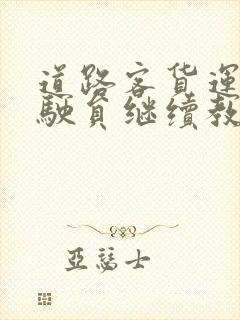 道路客货运
驶员继续教
亚瑟士